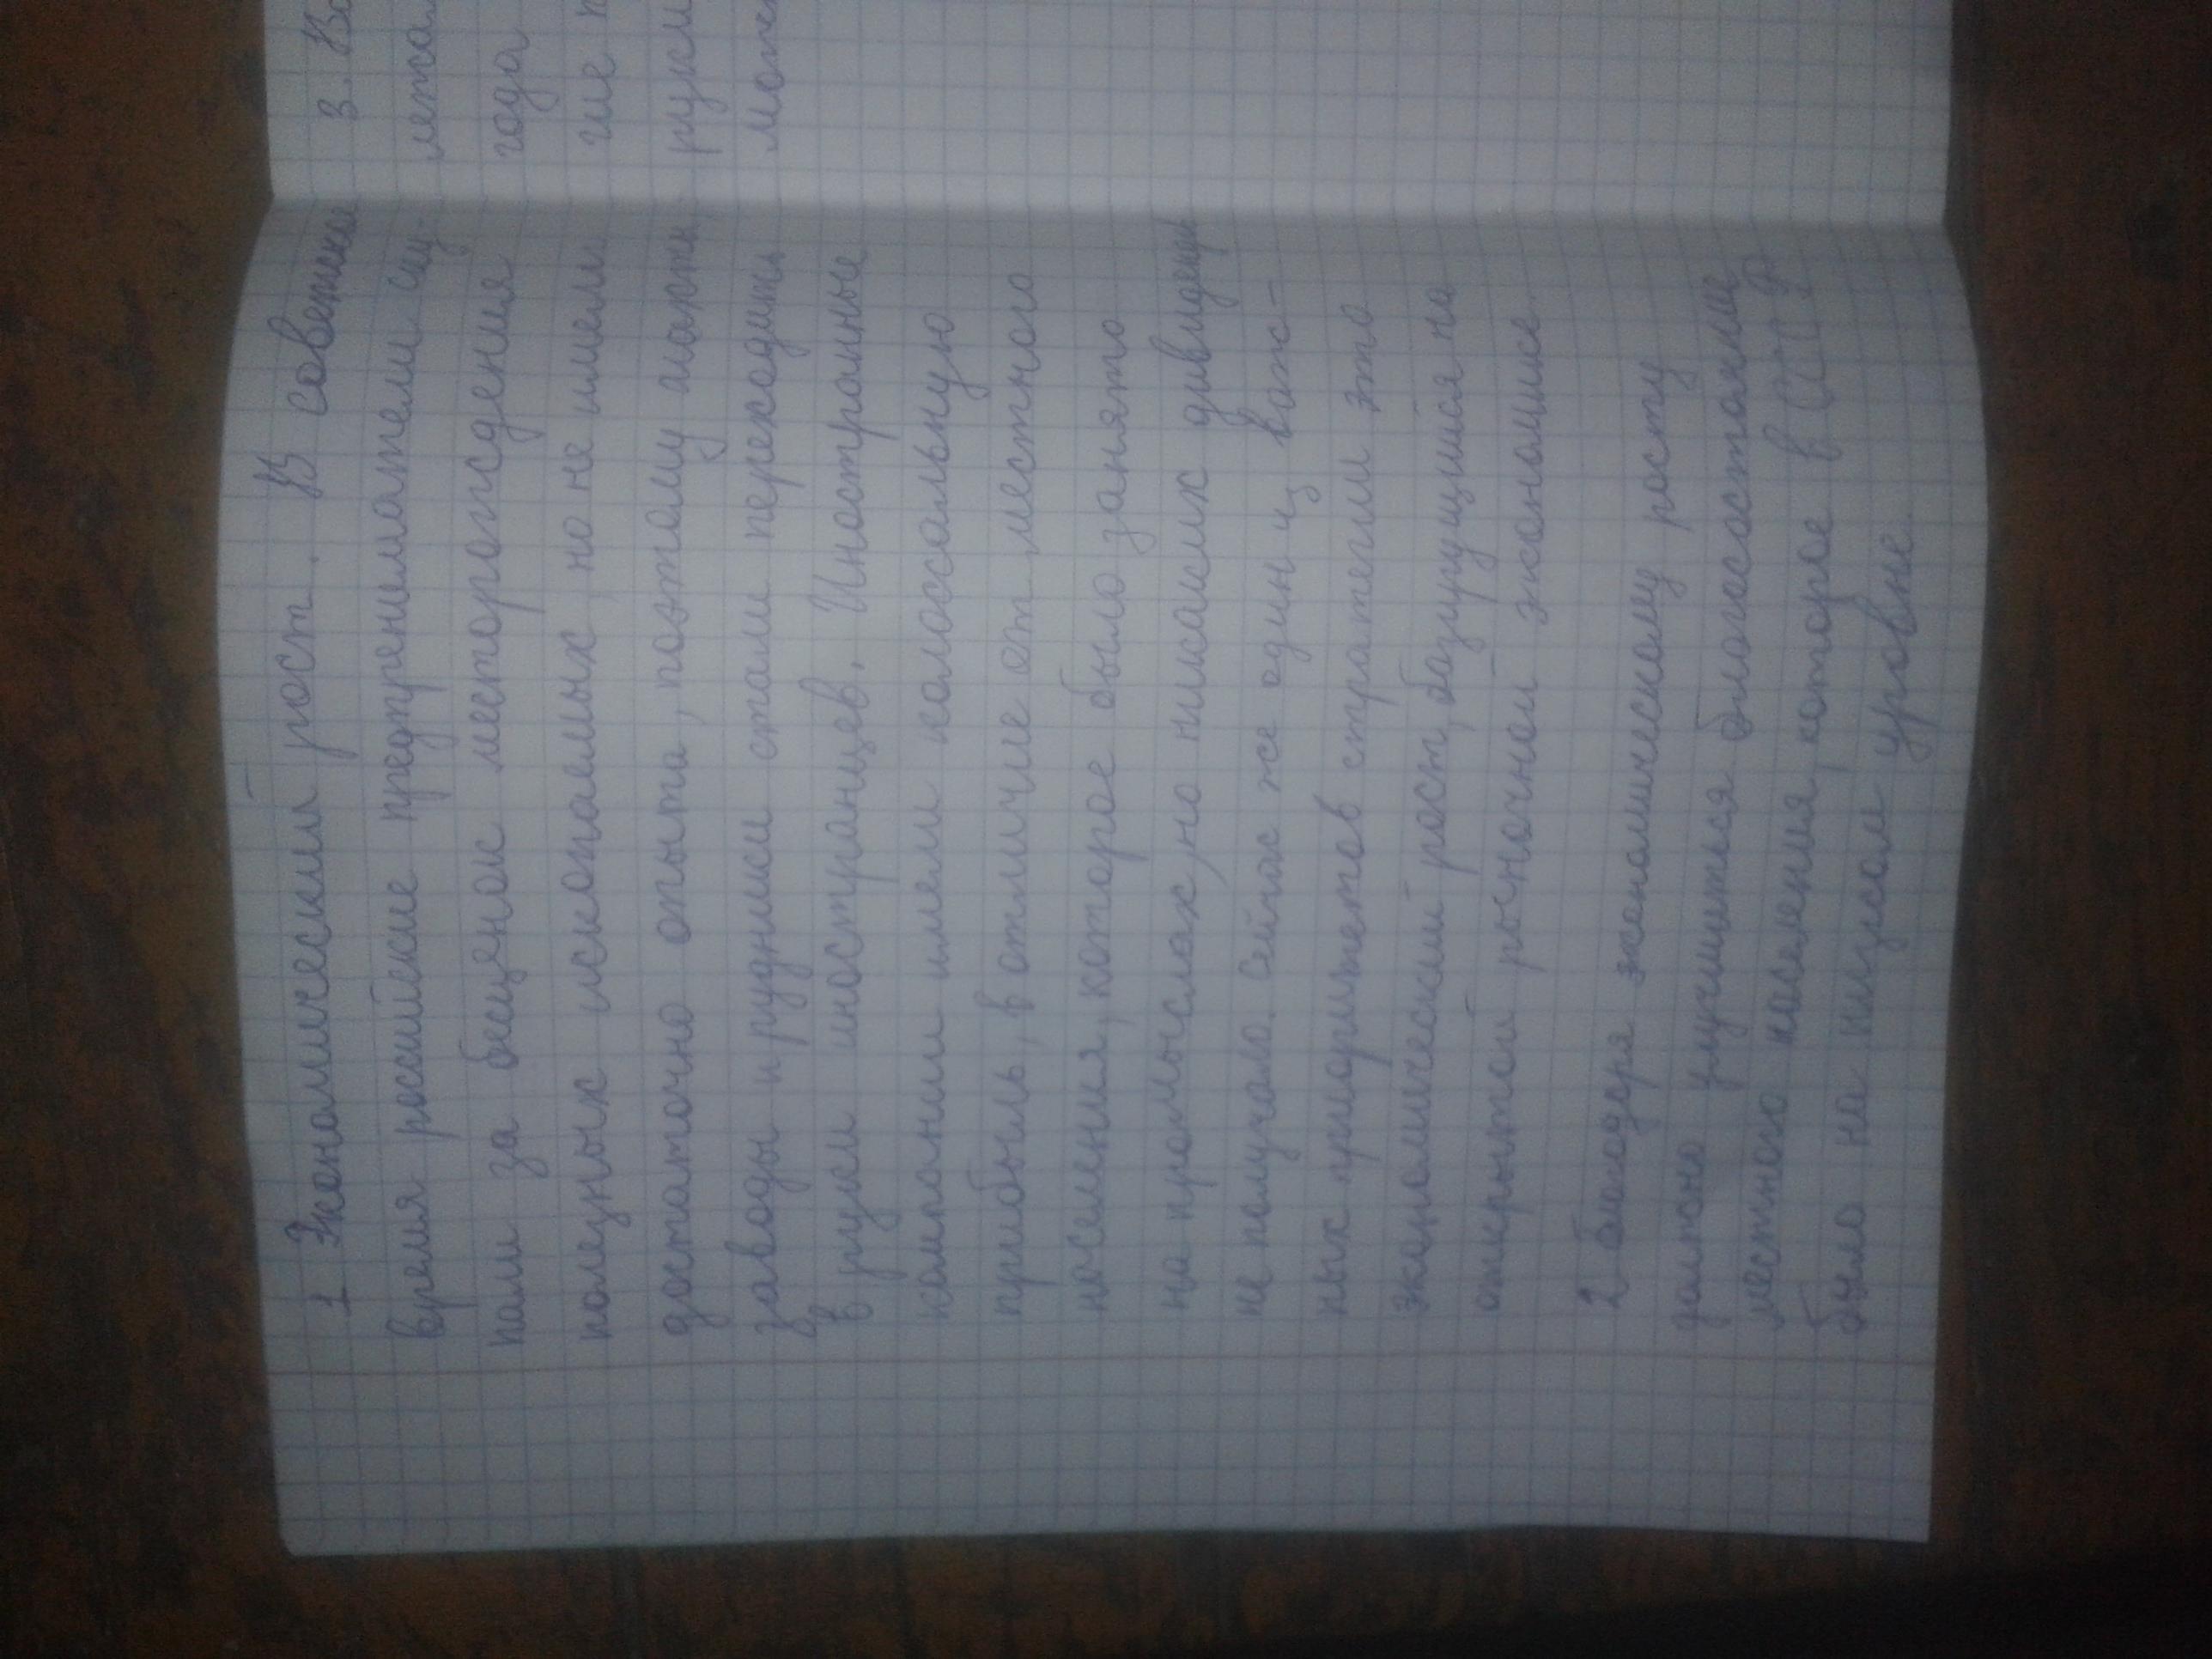 1 Экономический рост. В советское
время российские предпренематели ску-
пали за бесценок месторождения
полезных ископаемых, но не имели
достаточно опыта, поэтому шахты,
заводы и рудники стали переходить
в руки иностранцев. Иностранные
компании имели колоссальную
прибыль, в отличие от местного
населения, которое было занято
на промыслах, но никаких дивидендов
не получало. Сейчас же один из важ-
ных приоритетов стратегии это
экономический рост, базирующийся на
открытой рыночной экономике.
2 Благодаря экономическому росту
должно улучшится благосостояние
местного населения, которое в СССР
было на низком уровне.
3. Во
года